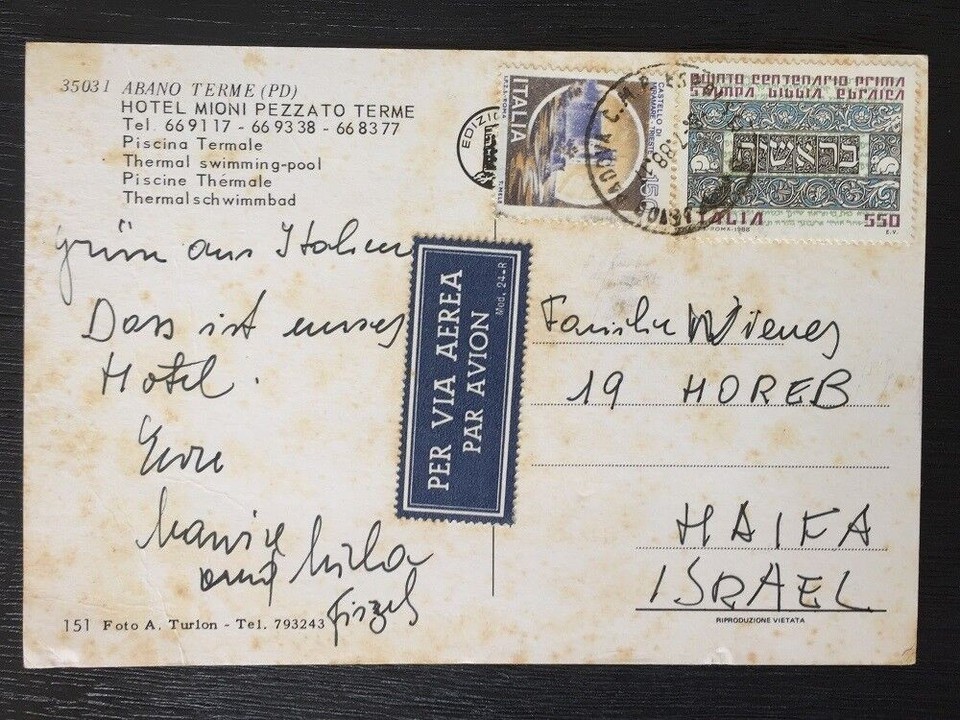 35031 ABANO TERME (PD)
HOTEL MIONI PEZZATO TERME
Tel. 669117 - 669338 - 668377
Piscina Termale
Thermal swimming-pool
Piscine Thérmale
Thermalschwimmbad
EDIZIO
ITALIA
CASTELLO DI
MIRAMARE TRIESTE
PADOVA C.M.P.
QUINTO CENTENARIO PRIMA
STAMPA BIBBIA EBRAICA
בראשית
ITALIA
550
E.V.
aus Italien
Dass ist unser
Hotel.
Eure
und Mila
PER VIA AEREA
PAR AVION
Mod. 24-R
Familie Wiener
19 HOREB
HAIFA
ISRAEL
151 Foto A. Turlon - Tel. 793243
RIPRODUZIONE VIETATA